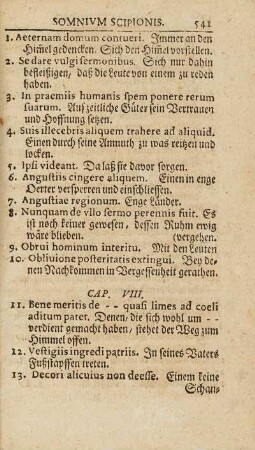 SOMNIVM SCIPIONIS. 541
1. Aeternam domum contueri. Immer an den
Himel gedencken. Sich den Himel vorstellen.
2. Se dare vulgi sermonibus. Sich nur dahin
befleißigen, daß die Leute von einem zu reden
haben.
3. In praemiis humanis spem ponere rerum
suarum. Auf zeitliche Güter sein Vertrauen
und Hoffnung setzen.
4. Suis illecebris aliquem trahere ad aliquid.
Einen durch seine Anmuth zu was reitzen und
locken.
5. Ipsi videant. Da laß sie davor sorgen.
6. Angustiis cingere aliquem. Einen in enge
Oerter versperren und einschliessen.
7. Angustiae regionum. Enge Länder.
8. Nunquam de vllo sermo perennis fuit. Es
ist noch keiner gewesen, dessen Ruhm ewig
wäre blieben. (vergehen.
9. Obrui hominum interitu. Mit den Leuten
10. Obliuione posteritatis extingui. Bey de-
nen Nachkommen in Vergessenheit gerathen.
CAP. VIII.
11. Bene meritis de - - quasi limes ad coeli
aditum patet. Denen, die sich wohl um - -
verdient gemacht haben, stehet der Weg zum
Himmel offen.
12. Vestigiis ingredi patriis. In seines Vaters
Fußstapffen treten.
13. Decori alicuius non deesse. Einem keine
Schan-